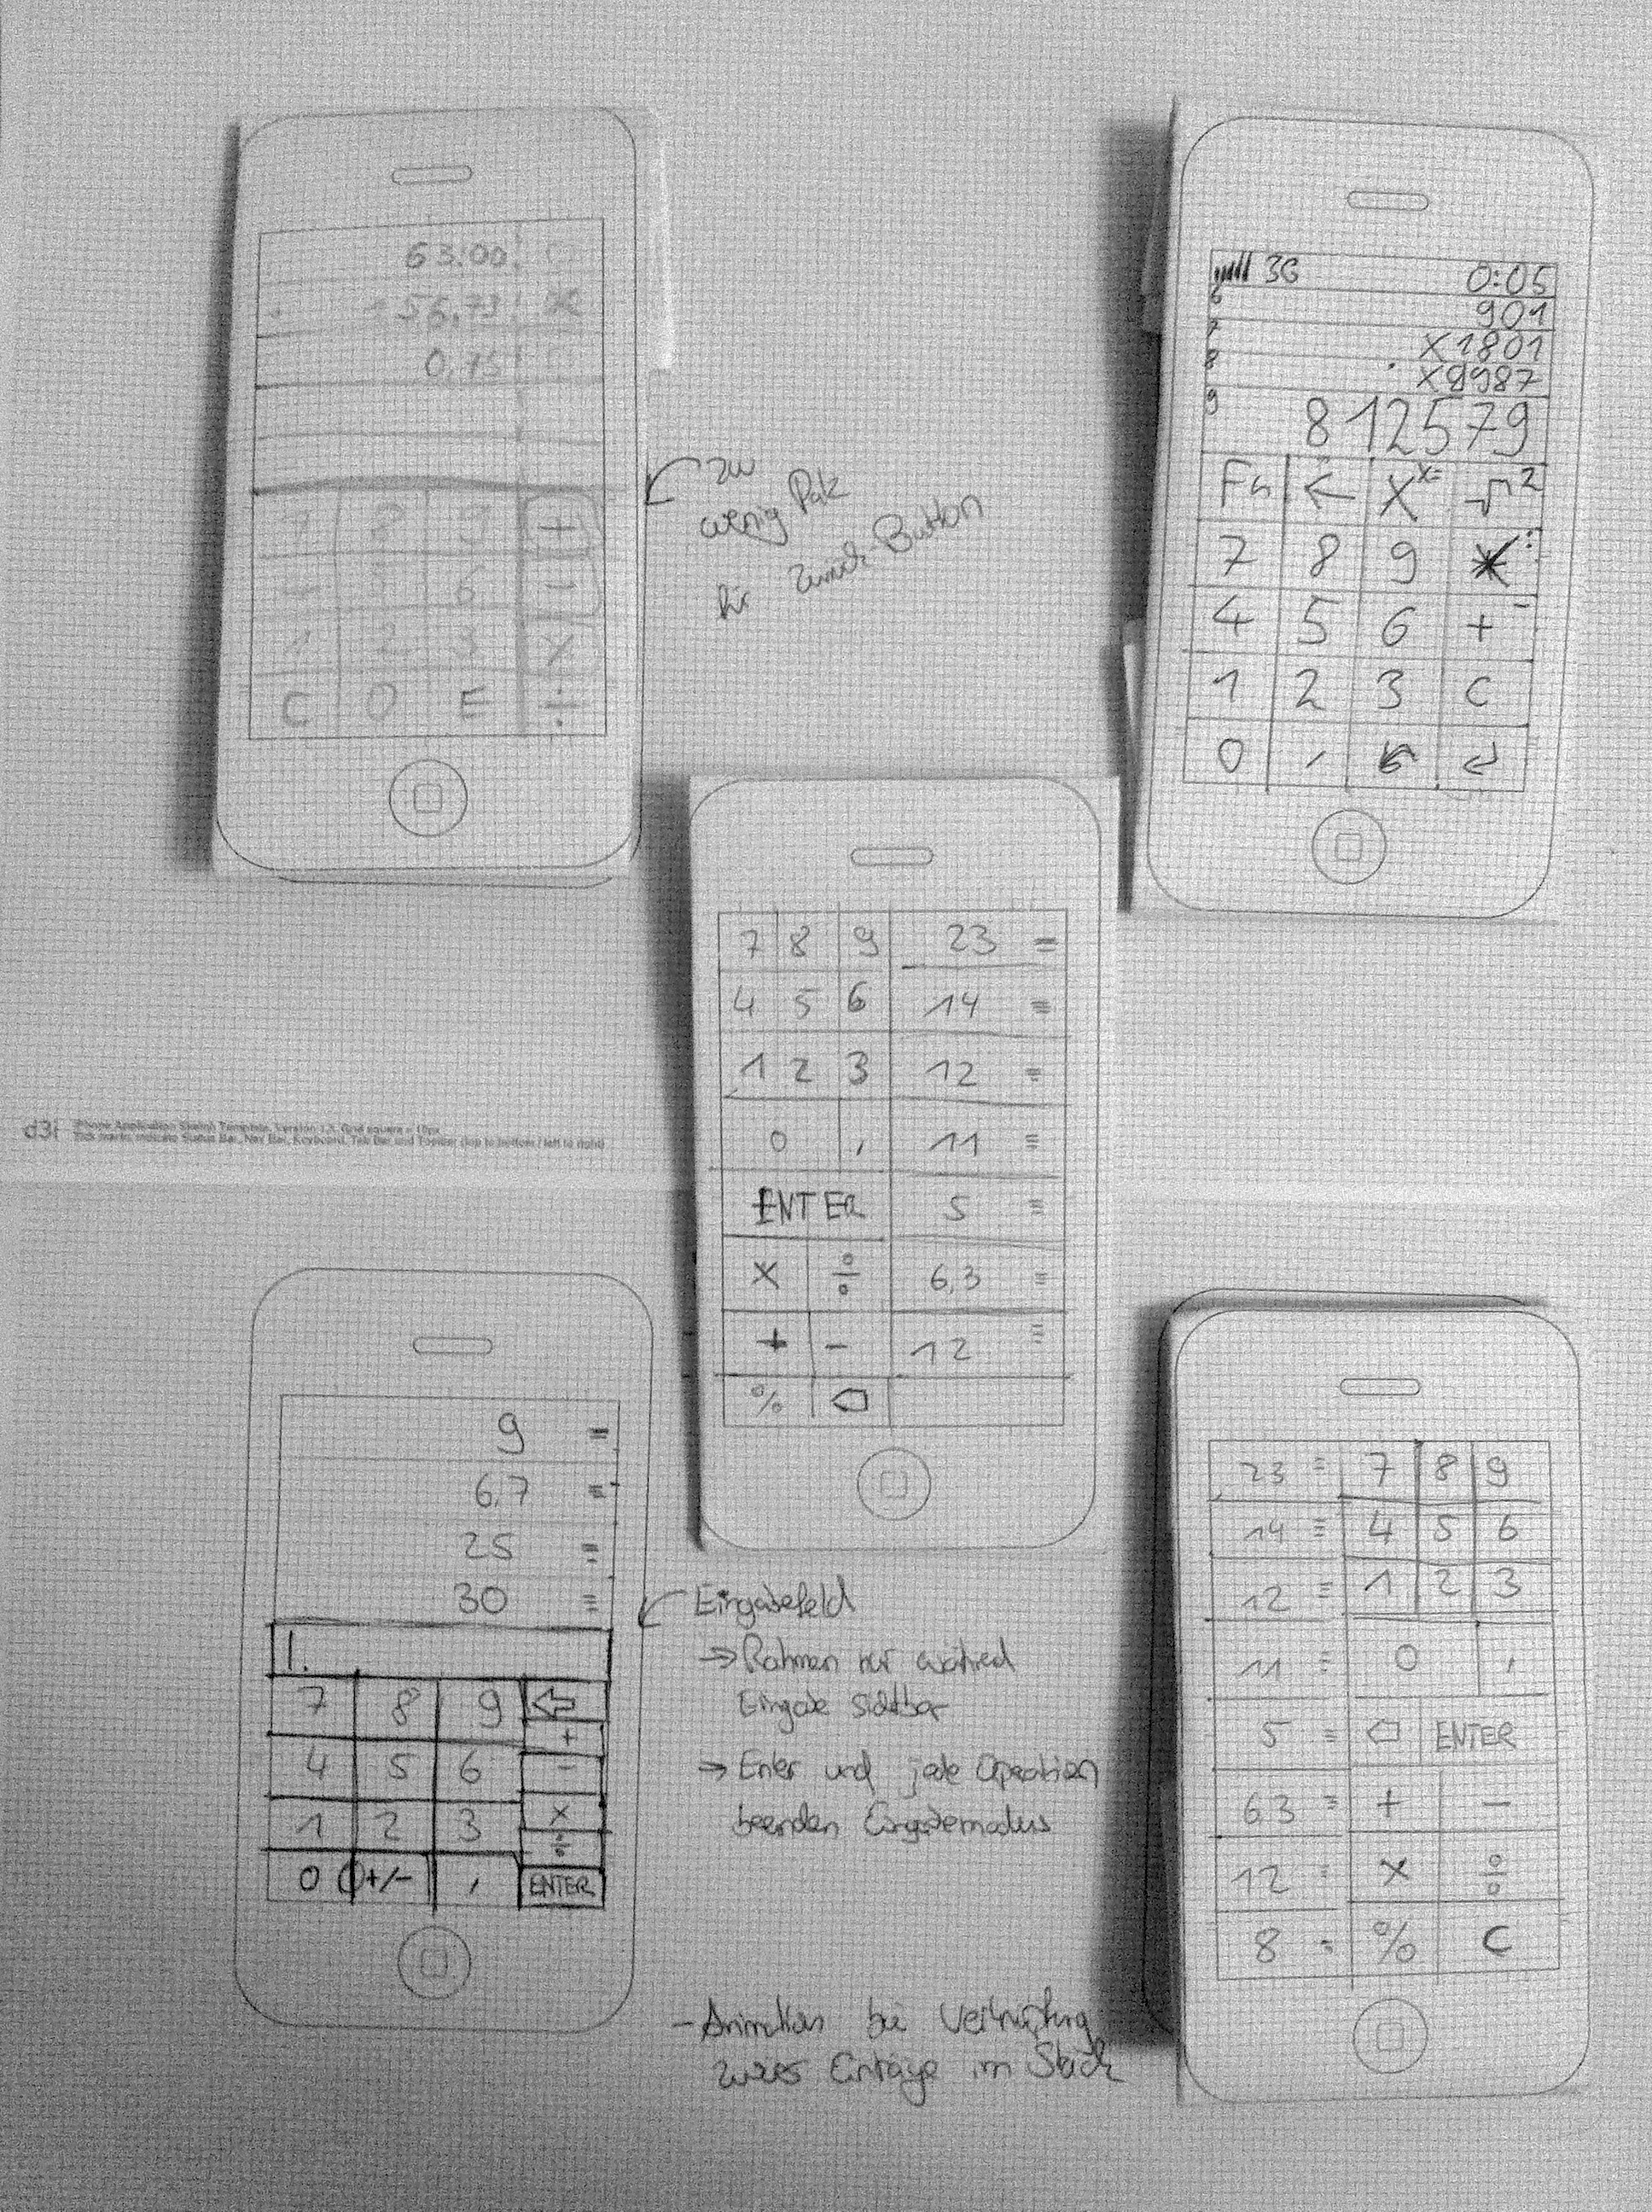 63.00
56,73
0,75
7 8 9 +
4 6 -
1 2 3 X
C 0 E ÷
zu
wenig Platz
für Zurück-Button
3G 0:05
6 901
7 X1801
8 X8987
9 812579
Fn ← X √ 2
7 8 9 * :
4 5 6 + -
1 2 3 C
0 ,
7 8 9 23 =
4 5 6 14 ≡
1 2 3 12 ≡
0 , 11 ≡
ENTER 5 ≡
X ÷ 6,3 ≡
+ - 12 ≡
%
d3i iPhone Application Sketch Template, Version 1.3, Grid square = 10px
Tick marks indicate Status Bar, Nav Bar, Keyboard, Tab Bar and Toolbar (top to bottom / left to right)
9 =
6,7 =
25 ≡
30 ≡
7 8 9
+
4 5 6 -
1 2 3 X
÷
0 +/- , ENTER
Eingabefeld
→ Rahmen nur während
Eingabe sichtbar
→ Enter und jede Operation
beenden Eingabemodus
- Animation bei Verknüpfung
zweier Einträge im Stack
23 ≡ 7 8 9
14 ≡ 4 5 6
12 ≡ 1 2 3
11 ≡ 0 ,
5 ≡ ENTER
63 ≡ + -
12 = X ÷
8 % C